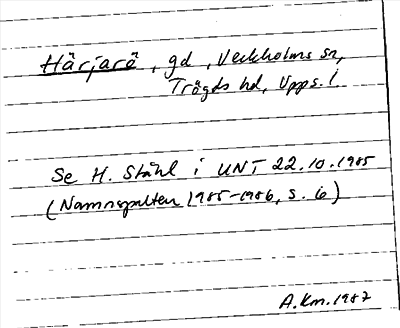 Härjarö, gd, Veckholms sn,
Trögds hd, Upps. l.
Se H. Ståhl i UNT 22.10.1985
(Namnspalten 1985-1986, s. 6)
A.Km.1987